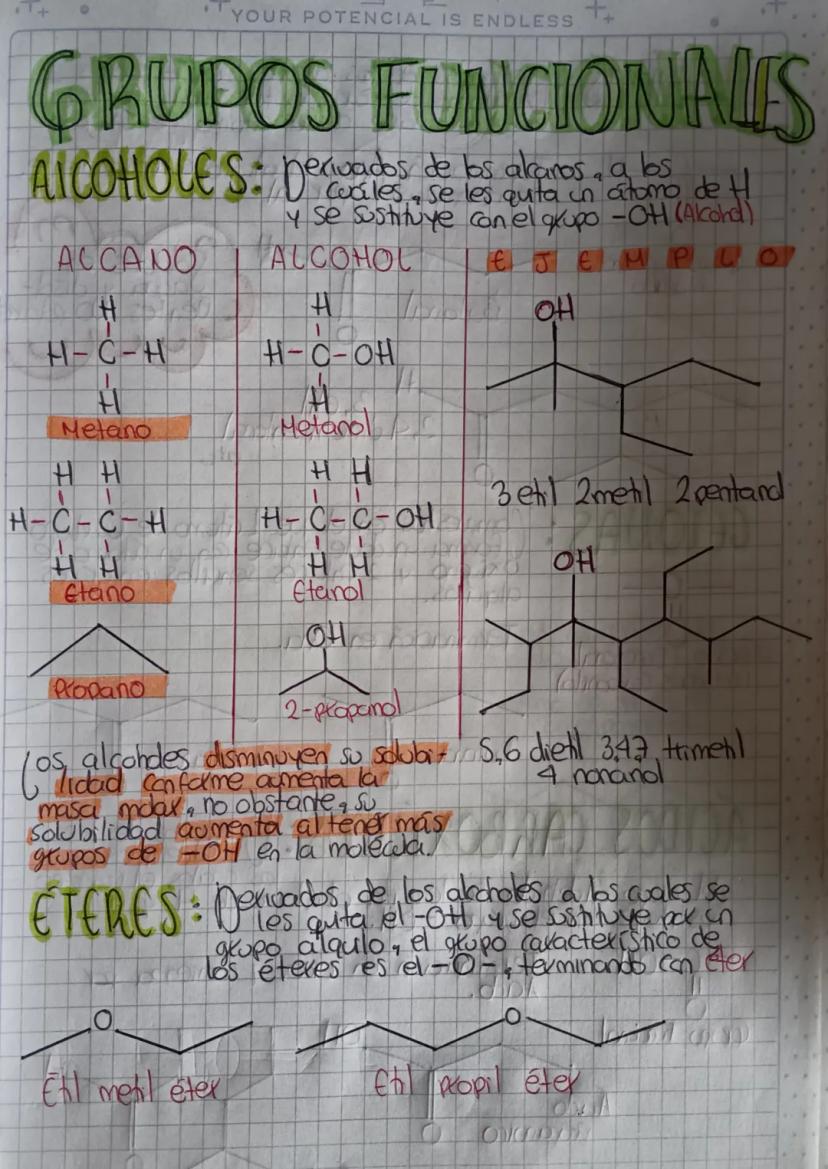 YOUR POTENCIAL IS ENDLESS
GRUPOS FUNCIONALES
AlCOHOLES: Derivados de los alcanos, a los
cuáles, se les quita un átomo de H
y se sustituye con el grupo -OH (Alcohol)
ALCANO
H
H-C-H
H
Metano
H H
H-C-C-H
H H
Etano
Propano
ALCOHOL
H
H-C-OH
H
Metanol
H H
H-C-C-OH
H H
Etanol
OH
2-propanol
EJEMPLO
OH
3 etil 2 metil 2 pentanol
OH
5,6 dietil 3,4,7, trimetil
4 nonanol
Los alcoholes disminuyen su solubi-
lidad conforme aumenta la
masa molar, no obstante, su
solubilidad aumenta al tener más
grupos de -OH en la molécula.
ÉTERES: Derivados, de, los alcoholes a los cuales se
les quita el -OH y se sustituye por un
grupo alquilo, el grupo característico de
los éteres es el -O-, terminando con éter
O
Etil metil éter
O
Etil propil éter